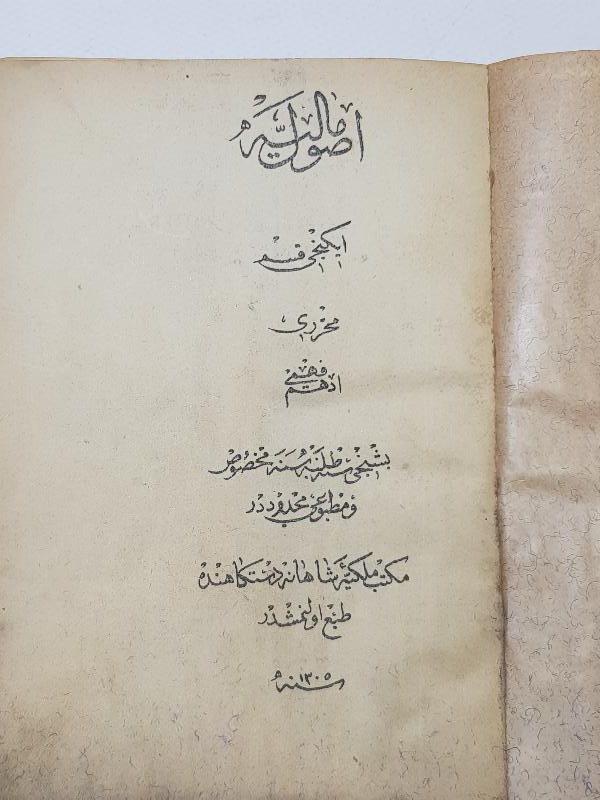 اصول مالیه
ایکنجی قسم
محرری
ادهم فهمی
بشنجی سنه طلبه سنه مخصوص
و مطبوعی محدوددر
مکتب ملکیهٔ شاهانه دستکاهنده
طبع اولنمشدر
سنه ١٣٠٥